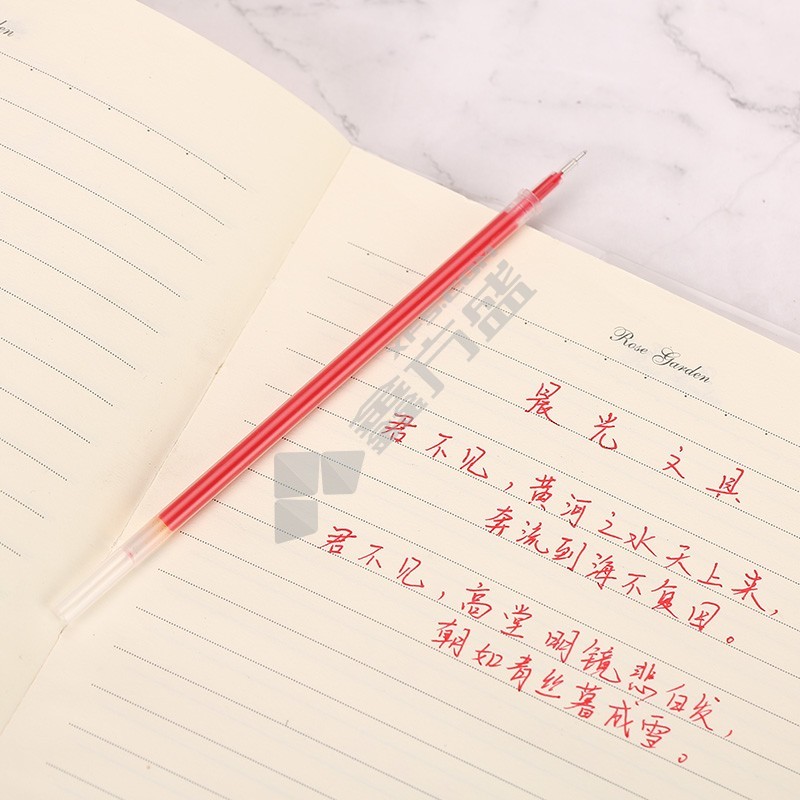 en
Rose Garden
晨光文具
君不见，黄河之水天上来，
奔流到海不复回。
君不见，高堂明镜悲白发，
朝如青丝暮成雪。
鑫方盛